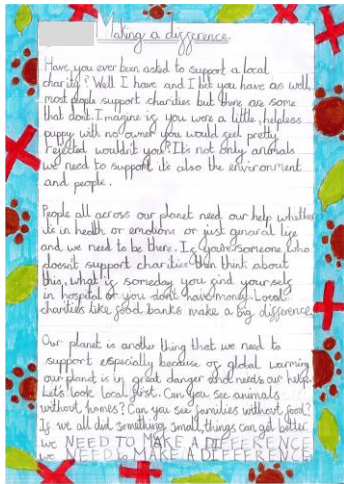 Making a difference.
Have you ever been asked to support a local
charity? Well I have and I bet you have as well,
most people support charities but there are some
that don't. Imagine if you were a little, helpless
puppy with no owner you would feel pretty
rejected wouldn't you? It's not only animals
we need to support its also the environment
and people.
People all across our planet need our help whether
its in health or emotions or just general life
and we need to be there. If your someone who
doesn't support charities then think about
this, what if someday you find yourself
in hospital or you don't have money. Local
charities like food banks make a big difference.
Our planet is another thing that we need to
support especially because of global warming
our planet is in great danger and needs our help.
Let's look local first. Can you see animals
without homes? Can you see families without food?
If we all did something small, things can get better.
We NEED TO MAKE A DIFFERENCE
We NEED To MAKE A DIFFERENCE